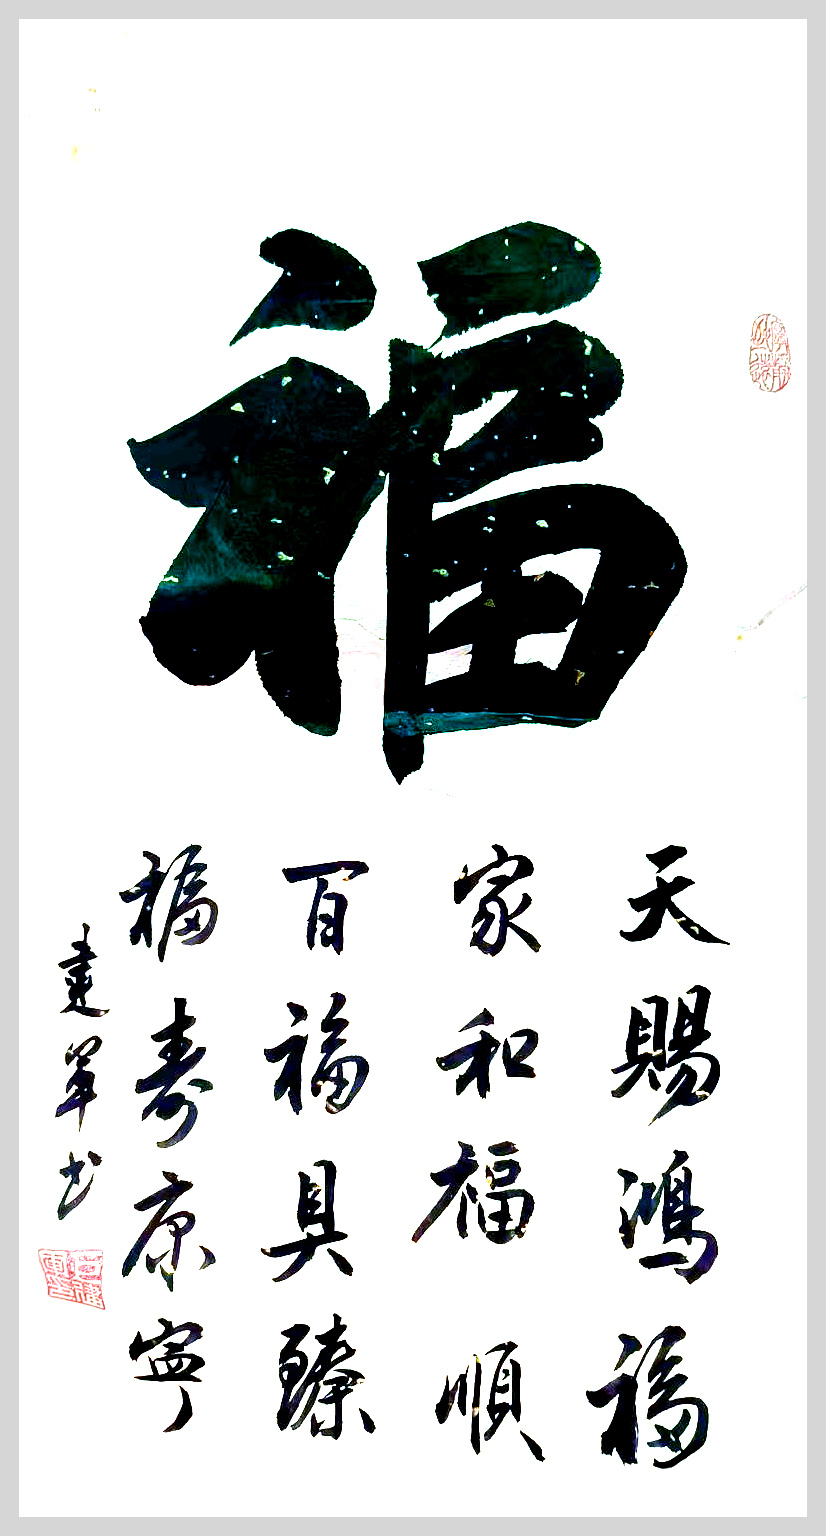 福
天賜鴻福
家和福順
百福具臻
福寿康寧
建軍书